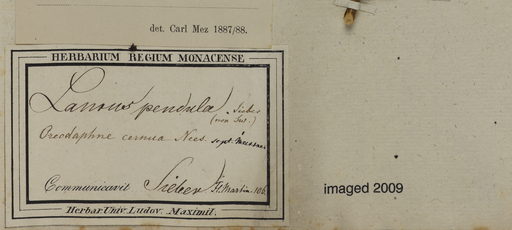 det. Carl Mez 1887/88.
HERBARIUM REGIUM MONACENSE
Laurus pendula. Sieber
(non Sw.)
Oreodaphne cernua Nees. sept. Meissner
Communicavit Sieber St. Martin. 106
Herbar. Univ. Ludov. Maximil.
imaged 2009